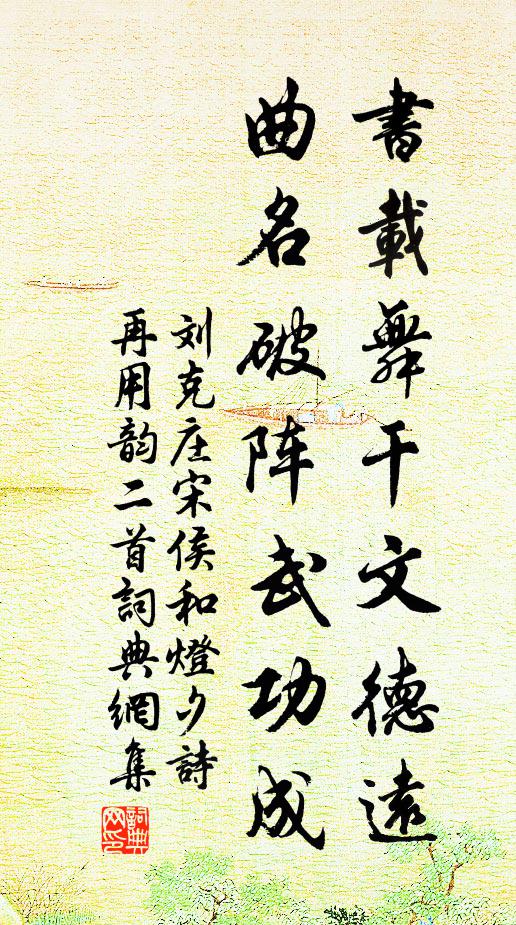 書載舞干文德遠
曲名破阵武功成
刘克庄宋侯和燈夕詩
再用韵二首詞典網集
詞典
网印